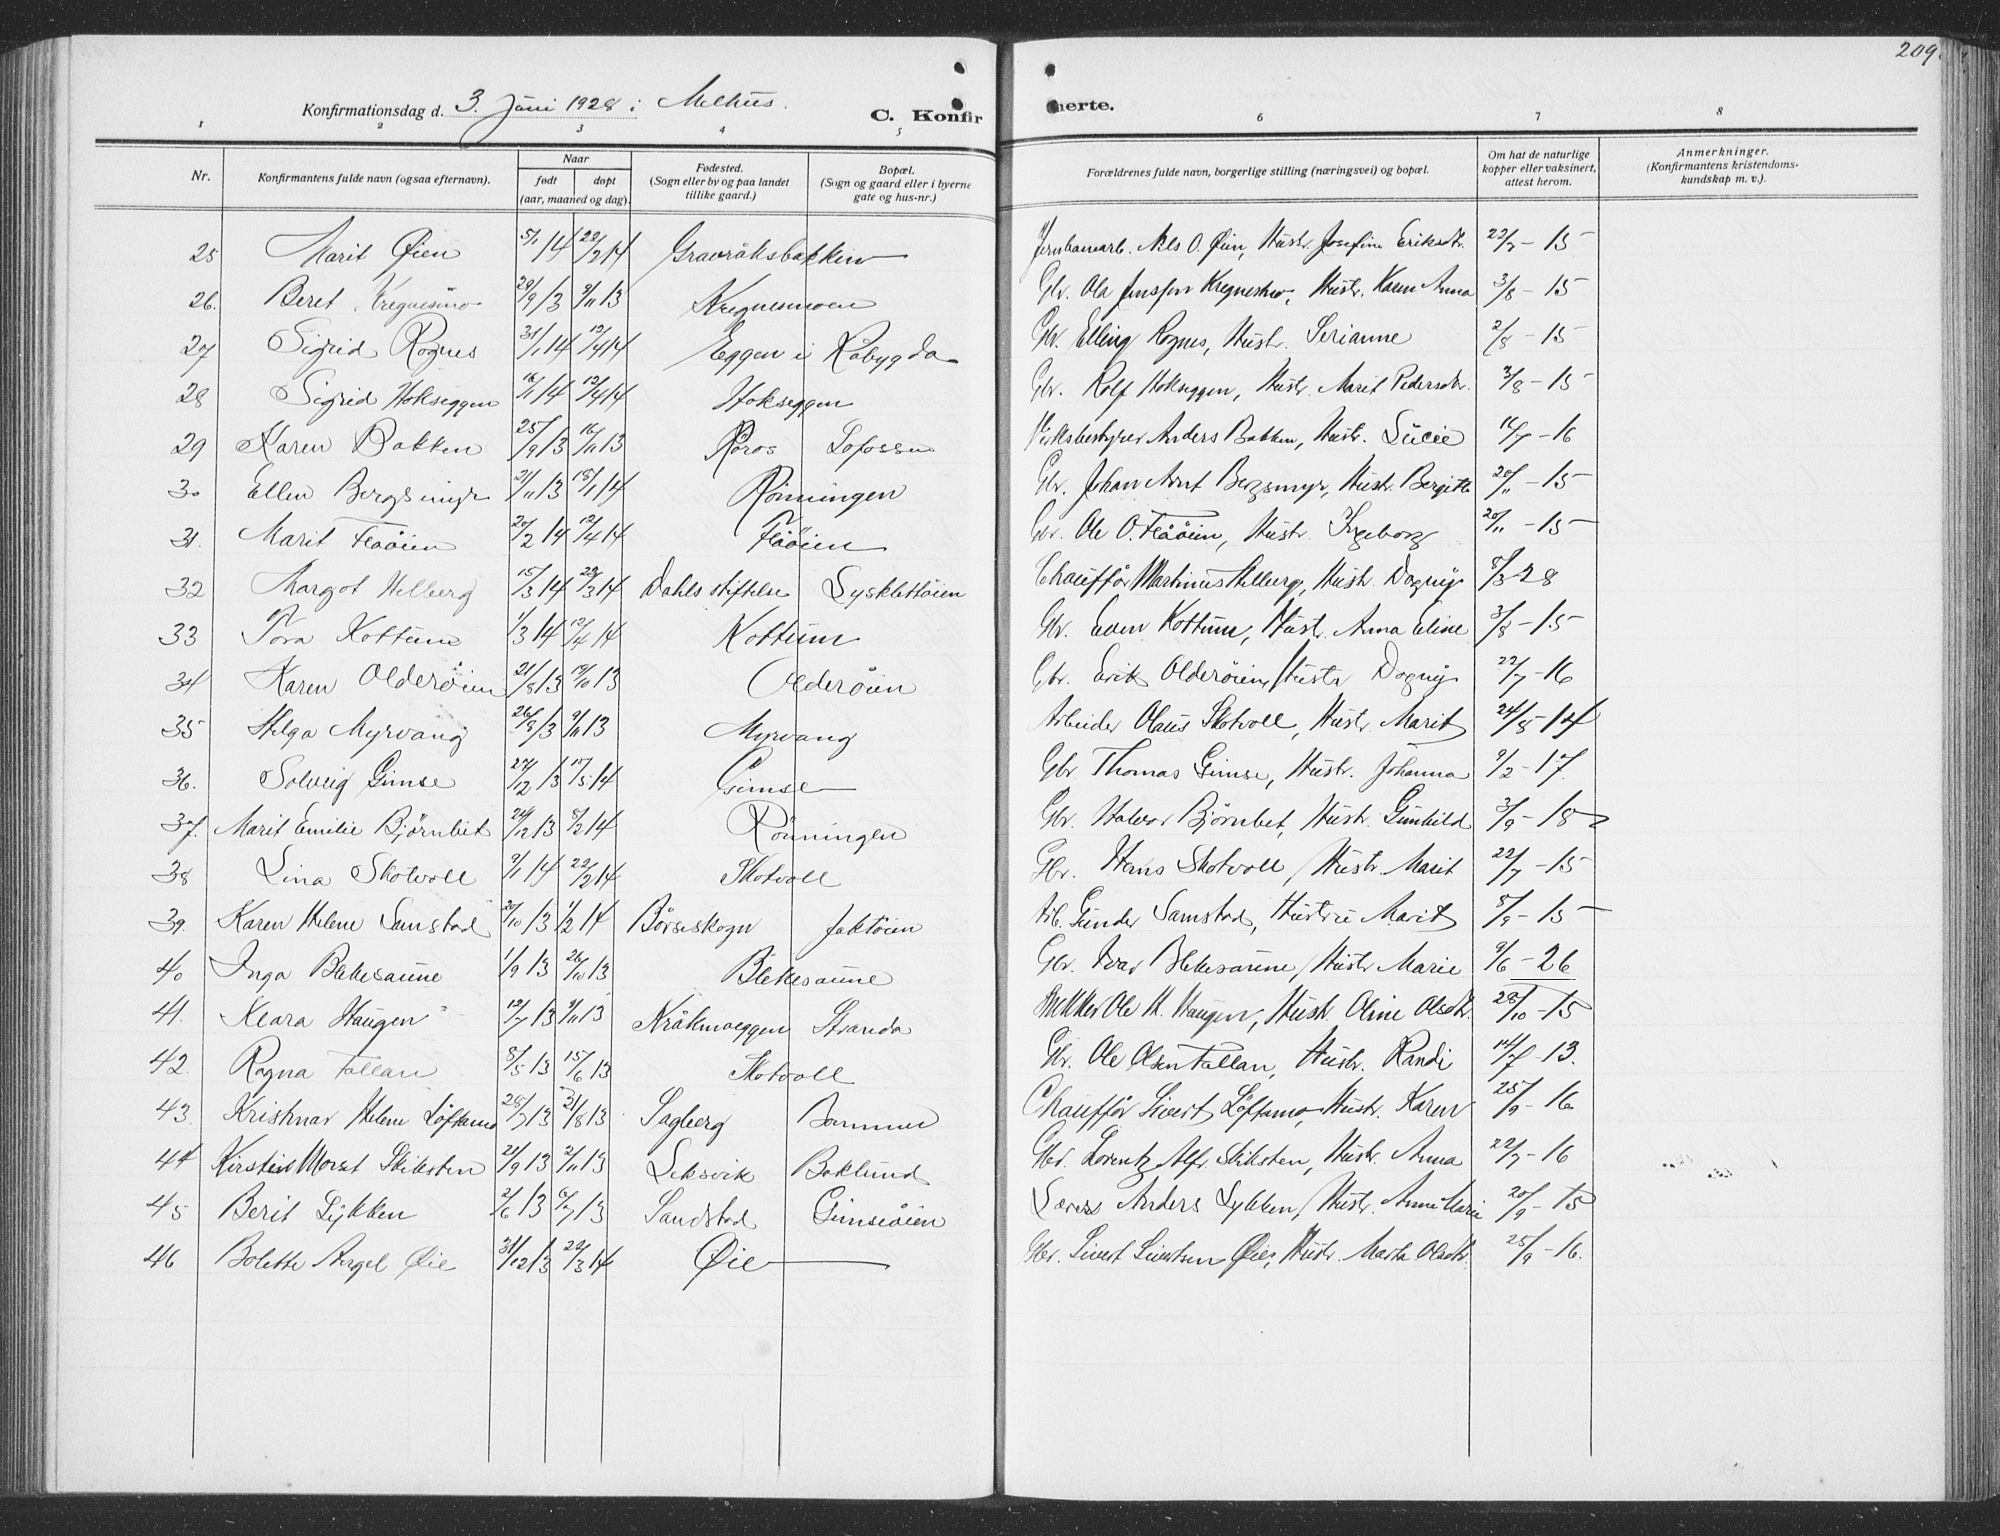 209.
Konfirmationsdag d. 3. Juni 1928 i Melhus.
C. Konfirmerte.
1 2 3 4 5 6 7 8
Nr. Konfirmantens fulde navn (ogsaa efternavn). Naar født døpt (aar, maaned og dag). Fødested. (Sogn eller by og paa landet tillike gaard.) Bopæl. (Sogn og gaard eller i byerne gate og hus-nr.) Forældrenes fulde navn, borgerlige stilling (næringsvei) og bopæl. Om hat de naturlige kopper eller vaksinert, attest herom. Anmerkninger. (Konfirmantens kristendomskundskap m. v.).
25 Marit Øien 5/1 14 22/2 14 Gravråksbakken Jernbanearb. Nils O. Øien, Hustr. Josefine Eriksdtr. 22/7 - 15
26. Beret Kregnesmo 29/9 13 9/11 13 Kregnesmoen Gbr. Ola Jensen Kregnesmo, Hustr. Karen Anna 3/8 - 15
27 Sigrid Rognes 31/1 14 12/4 14 Eggen i Råbygda Gbr. Elling Rognes, Hustr. Serianne 2/8 - 15
28 Sigrid Hokseggen 16/1 14 12/4 14 Hokseggen Gbr. Rolf Hokseggen, Hustr. Marit Pedersdtr. 3/8 - 15
29 Karen Bakken 25/9 13 16/11 13 Røros Lofossen Verksbestyrer Anders Bakken, Hustr. Lucie 12/7 - 16
30 Ellen Bergsmyr 21/11 13 18/1 14 Rönningen Gbr. Johan Arnt Bergsmyr, Hustr. Bergitte 20/11 - 15
31. Marit Flåøien 20/2 14 12/4 14 Flåøien Gbr. Ole O. Flåøien, Hustr. Ingeborg 20/11 - 15
32 Margot Helberg 15/3 14 29/3 14 Dahls stiftelse Lysklettøien Chauffør Martinus Helberg, Hustr. Dagny 8/3 28
33 Tora Kottum 1/3 14 12/4 14 Kottum Gbr. Even Kottum, Hustr. Anna Eline 3/8 - 15
34 Karen Olderøien 21/8 13 19/10 13 Olderøien Gbr. Erik Olderøien, Hustr Dagny 22/7 - 16
35 Helga Myrvang 26/8 13 9/11 13 Myrvang Arbeider Olaus Skotvoll, Hustr. Marit 24/5 - 14
36. Solveig Gimse 27/12 13 17/5 14 Gimse Gbr. Thomas Gimse, Hustr. Johanna 9/2 - 17.
37. Marit Emilie Bjørnbet 24/12 13 8/2 14 Rønningen Gbr. Halvor Bjørnbet, Hustr. Gunhild 3/9 - 15
38 Lina Skotvoll 9/1 14 22/2 14 Skotvoll Gbr. Hans Skotvoll, Hustr. Marit 22/7 - 15
39. Karen Helene Samstad 20/10 13 1/2 14 Børseskogn Jaktøien Arb. Gunder Samstad, Hustru Marit 5/9 - 15
40 Inga Blekesaune 1/9 13 26/10 13 Blekesaune Gbr. Ivar Blekesaune, Hustr Marie 9/6 - 26
41. Klara Haugen 12/7 13 9/11 13 Kråkmoeggen Stranda Snekker Ole H. Haugen, Hustr. Oline Olsdtr. 28/10 - 15
42. Ragna Fallan 8/5 13 15/6 13 Skotvoll Gbr. Ole Olsen Fallan, Hustr. Randi 14/7 - 13.
43. Kristmar Helene Løftamo 28/7 13 31/8 13 Sagberg Bommen Chauffør Sivert Løftamo, Hustr. Karen 25/9 - 16
44 Kirsten Morset Skiksten 21/9 13 2/11 13 Leksvik Baklund Gbr. Lorentz Alfr. Skiksten, Hustr. Anna 22/7 - 16
45 Berit Lykken 2/6 13 6/7 13 Sandstad Gimseøien Lærer Anders Lykken, Hustr. Anne Marie 20/9 - 15
46 Bolette Angel Øie 31/12 13 22/3 14 Øie Gbr. Sivert Sivertsen Øie, Hustr. Marta Olsdtr. 25/9 - 16.